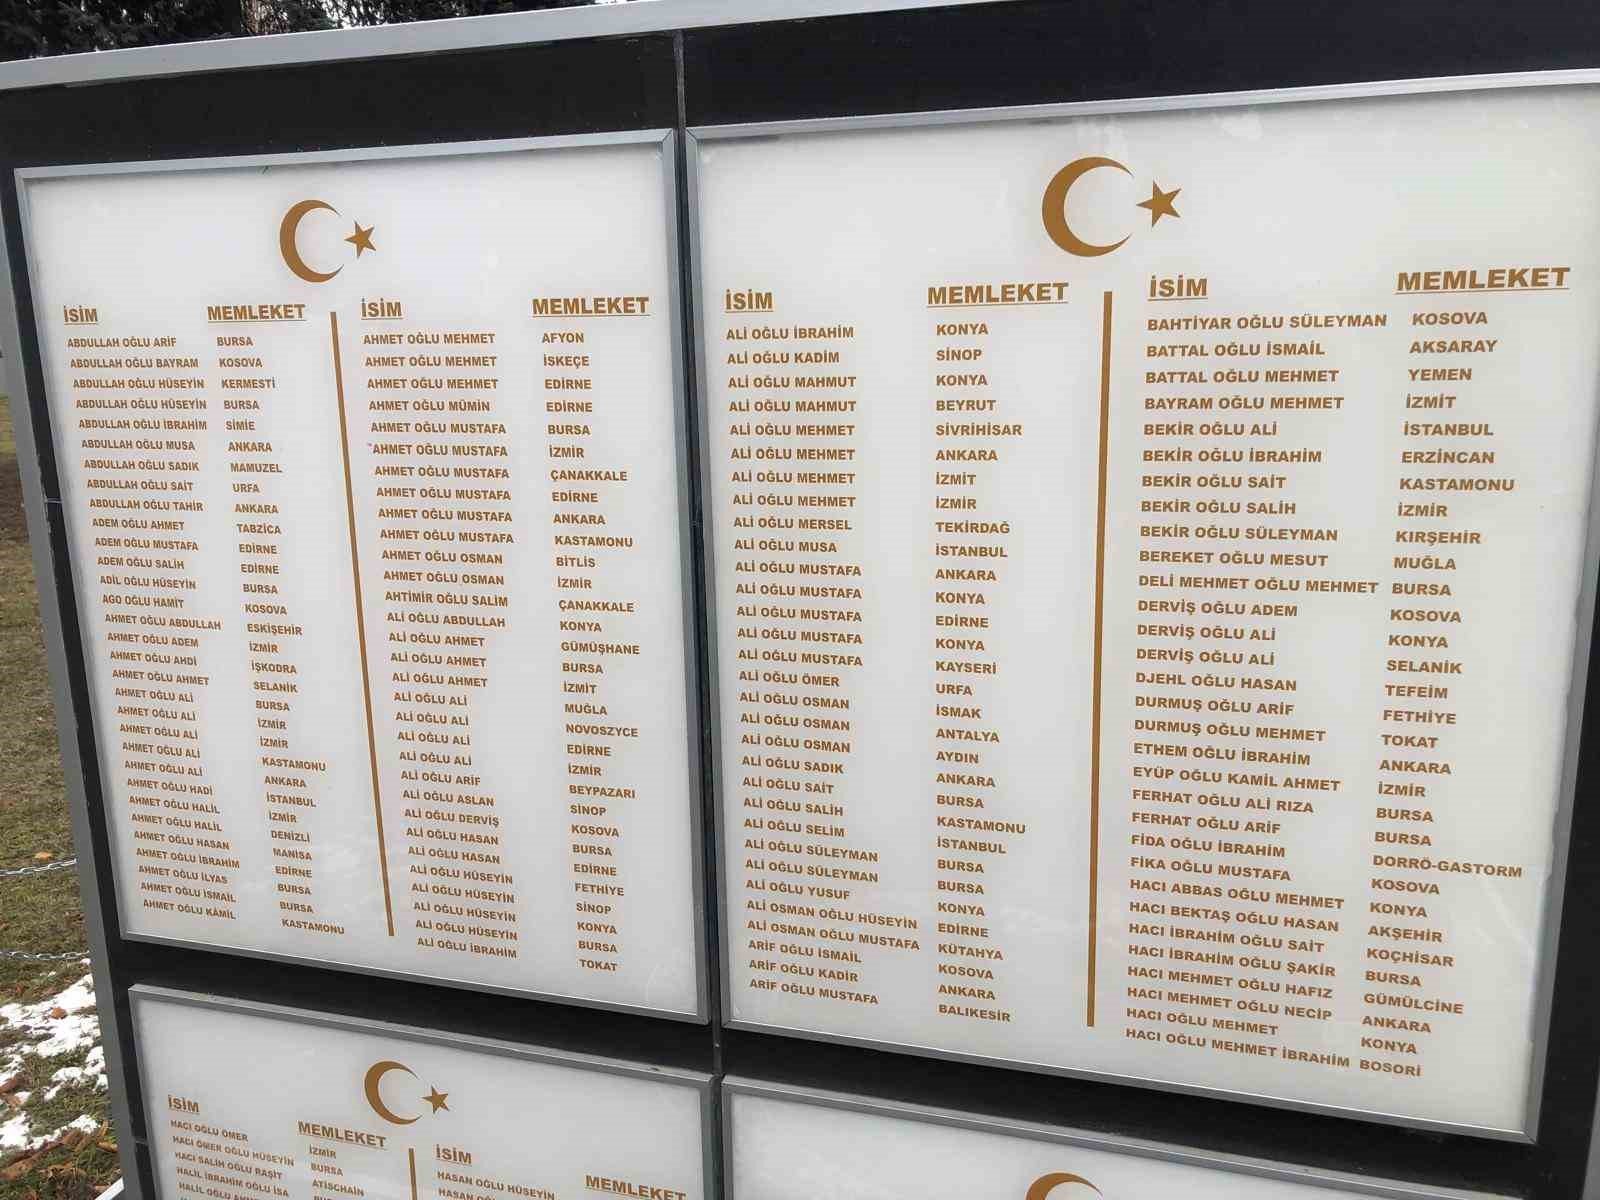 İSİM MEMLEKET
ABDULLAH OĞLU ARİF BURSA
ABDULLAH OĞLU BAYRAM KOSOVA
ABDULLAH OĞLU HÜSEYİN KERMESTİ
ABDULLAH OĞLU HÜSEYİN BURSA
ABDULLAH OĞLU İBRAHİM SİMİE
ABDULLAH OĞLU MUSA ANKARA
ABDULLAH OĞLU SADIK MAMUZEL
ABDULLAH OĞLU SAİT URFA
ABDULLAH OĞLU TAHİR ANKARA
ADEM OĞLU AHMET TABZİCA
ADEM OĞLU MUSTAFA EDİRNE
ADEM OĞLU SALİH EDİRNE
ADİL OĞLU HÜSEYİN BURSA
AGO OĞLU HAMİT KOSOVA
AHMET OĞLU ABDULLAH ESKİŞEHİR
AHMET OĞLU ADEM İZMİR
AHMET OĞLU AHDİ İŞKODRA
AHMET OĞLU AHMET SELANİK
AHMET OĞLU ALİ BURSA
AHMET OĞLU ALİ İZMİR
AHMET OĞLU ALİ İZMİR
AHMET OĞLU ALİ KASTAMONU
AHMET OĞLU ALİ ANKARA
AHMET OĞLU HADİ İSTANBUL
AHMET OĞLU HALİL İZMİR
AHMET OĞLU HALİL DENİZLİ
AHMET OĞLU HASAN MANİSA
AHMET OĞLU İBRAHİM EDİRNE
AHMET OĞLU İLYAS BURSA
AHMET OĞLU İSMAİL BURSA
AHMET OĞLU KÂMİL KASTAMONU
İSİM MEMLEKET
AHMET OĞLU MEHMET AFYON
AHMET OĞLU MEHMET İSKEÇE
AHMET OĞLU MEHMET EDİRNE
AHMET OĞLU MÜMİN EDİRNE
AHMET OĞLU MUSTAFA BURSA
AHMET OĞLU MUSTAFA İZMİR
AHMET OĞLU MUSTAFA ÇANAKKALE
AHMET OĞLU MUSTAFA EDİRNE
AHMET OĞLU MUSTAFA ANKARA
AHMET OĞLU MUSTAFA KASTAMONU
AHMET OĞLU OSMAN BİTLİS
AHMET OĞLU OSMAN İZMİR
AHTİMİR OĞLU SALİM ÇANAKKALE
ALİ OĞLU ABDULLAH KONYA
ALİ OĞLU AHMET GÜMÜŞHANE
ALİ OĞLU AHMET BURSA
ALİ OĞLU AHMET İZMİT
ALİ OĞLU ALİ MUĞLA
ALİ OĞLU ALİ NOVOSZYCE
ALİ OĞLU ALİ EDİRNE
ALİ OĞLU ALİ İZMİR
ALİ OĞLU ARİF BEYPAZARI
ALİ OĞLU ASLAN SİNOP
ALİ OĞLU DERVİŞ KOSOVA
ALİ OĞLU HASAN BURSA
ALİ OĞLU HASAN EDİRNE
ALİ OĞLU HÜSEYİN FETHİYE
ALİ OĞLU HÜSEYİN SİNOP
ALİ OĞLU HÜSEYİN KONYA
ALİ OĞLU HÜSEYİN BURSA
ALİ OĞLU İBRAHİM TOKAT
İSİM MEMLEKET
ALİ OĞLU İBRAHİM KONYA
ALİ OĞLU KADİM SİNOP
ALİ OĞLU MAHMUT KONYA
ALİ OĞLU MAHMUT BEYRUT
ALİ OĞLU MEHMET SİVRİHİSAR
ALİ OĞLU MEHMET ANKARA
ALİ OĞLU MEHMET İZMİT
ALİ OĞLU MEHMET İZMİR
ALİ OĞLU MERSEL TEKİRDAĞ
ALİ OĞLU MUSA İSTANBUL
ALİ OĞLU MUSTAFA ANKARA
ALİ OĞLU MUSTAFA KONYA
ALİ OĞLU MUSTAFA EDİRNE
ALİ OĞLU MUSTAFA KONYA
ALİ OĞLU MUSTAFA KAYSERİ
ALİ OĞLU ÖMER URFA
ALİ OĞLU OSMAN İSMAK
ALİ OĞLU OSMAN ANTALYA
ALİ OĞLU OSMAN AYDIN
ALİ OĞLU SADIK ANKARA
ALİ OĞLU SAİT BURSA
ALİ OĞLU SALİH KASTAMONU
ALİ OĞLU SELİM İSTANBUL
ALİ OĞLU SÜLEYMAN BURSA
ALİ OĞLU SÜLEYMAN BURSA
ALİ OĞLU YUSUF KONYA
ALİ OSMAN OĞLU HÜSEYİN EDİRNE
ALİ OSMAN OĞLU MUSTAFA KÜTAHYA
ARİF OĞLU İSMAİL KOSOVA
ARİF OĞLU KADİR ANKARA
ARİF OĞLU MUSTAFA BALIKESİR
İSİM MEMLEKET
BAHTİYAR OĞLU SÜLEYMAN KOSOVA
BATTAL OĞLU İSMAİL AKSARAY
BATTAL OĞLU MEHMET YEMEN
BAYRAM OĞLU MEHMET İZMİT
BEKİR OĞLU ALİ İSTANBUL
BEKİR OĞLU İBRAHİM ERZİNCAN
BEKİR OĞLU SAİT KASTAMONU
BEKİR OĞLU SALİH İZMİR
BEKİR OĞLU SÜLEYMAN KIRŞEHİR
BEREKET OĞLU MESUT MUĞLA
DELİ MEHMET OĞLU MEHMET BURSA
DERVİŞ OĞLU ADEM KOSOVA
DERVİŞ OĞLU ALİ KONYA
DERVİŞ OĞLU ALİ SELANİK
DJEHL OĞLU HASAN TEFEİM
DURMUŞ OĞLU ARİF FETHİYE
DURMUŞ OĞLU MEHMET TOKAT
ETHEM OĞLU İBRAHİM ANKARA
EYÜP OĞLU KAMİL AHMET İZMİR
FERHAT OĞLU ALİ RIZA BURSA
FERHAT OĞLU ARİF BURSA
FİDA OĞLU İBRAHİM DORRÖ-GASTORM
FİKA OĞLU MUSTAFA KOSOVA
HACI ABBAS OĞLU MEHMET KONYA
HACI BEKTAŞ OĞLU HASAN AKŞEHİR
HACI İBRAHİM OĞLU SAİT KOÇHİSAR
HACI İBRAHİM OĞLU ŞAKİR BURSA
HACI MEHMET OĞLU HAFIZ GÜMÜLCİNE
HACI MEHMET OĞLU NECİP ANKARA
HACI OĞLU MEHMET KONYA
HACI OĞLU MEHMET İBRAHİM BOSORİ
İSİM MEMLEKET
HACI OĞLU ÖMER İZMİR
HACI ÖMER OĞLU HÜSEYİN BURSA
HACI SALİH OĞLU RAŞİT ATİSCHAIN
HALİL İBRAHİM OĞLU İSA
HALİL OĞLU
İSİM MEMLEKET
HASAN OĞLU HÜSEYİN
HASAN OĞLU